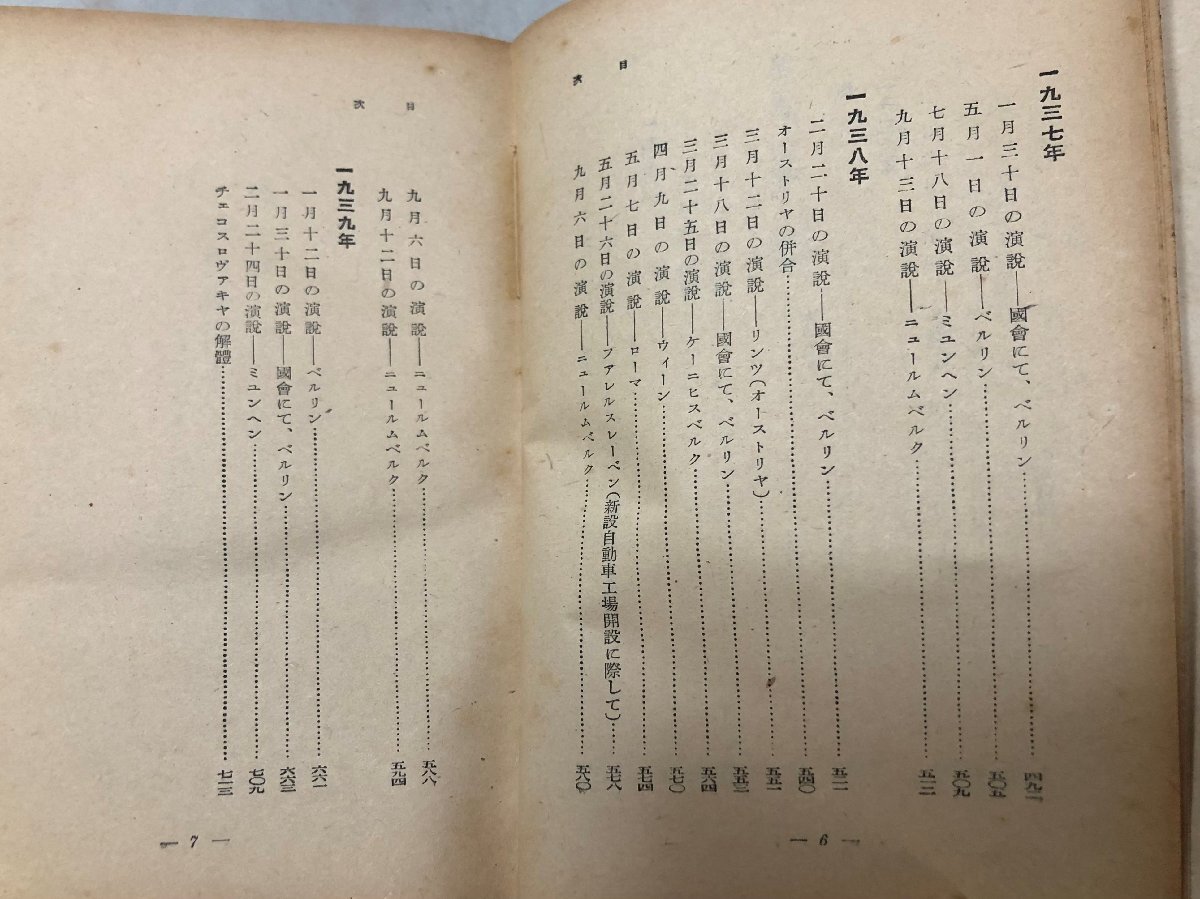 目次
一九三七年
一月三十日の演說――國會にて、ベルリン……四九二
五月一日の演說――ベルリン……五〇五
七月十八日の演說――ミユンヘン……五〇九
九月十三日の演說――ニュールムベルク……五一二
一九三八年
二月二十日の演說――國會にて、ベルリン……五二一
オーストリヤの併合……五四〇
三月十二日の演說――リンツ(オーストリヤ)……五五一
三月十八日の演說――國會にて、ベルリン……五五三
三月二十五日の演說――ケーニヒスベルク……五六四
四月九日の演說――ウィーン……五七〇
五月七日の演說――ローマ……五七四
五月二十六日の演說――ファレルスレーベン(新設自動車工場開設に際して)……五七八
九月六日の演說――ニュールムベルク……五八〇
― 6 ―
目次
九月六日の演說――ニュールムベルク……五八八
九月十二日の演說――ニュールムベルク……五九四
一九三九年
一月十二日の演說――ベルリン……六六二
一月三十日の演說――國會にて、ベルリン……六六三
二月二十四日の演說――ミュンヘン……七〇九
チェコスロヴァキヤの解體……七一三
― 7 ―